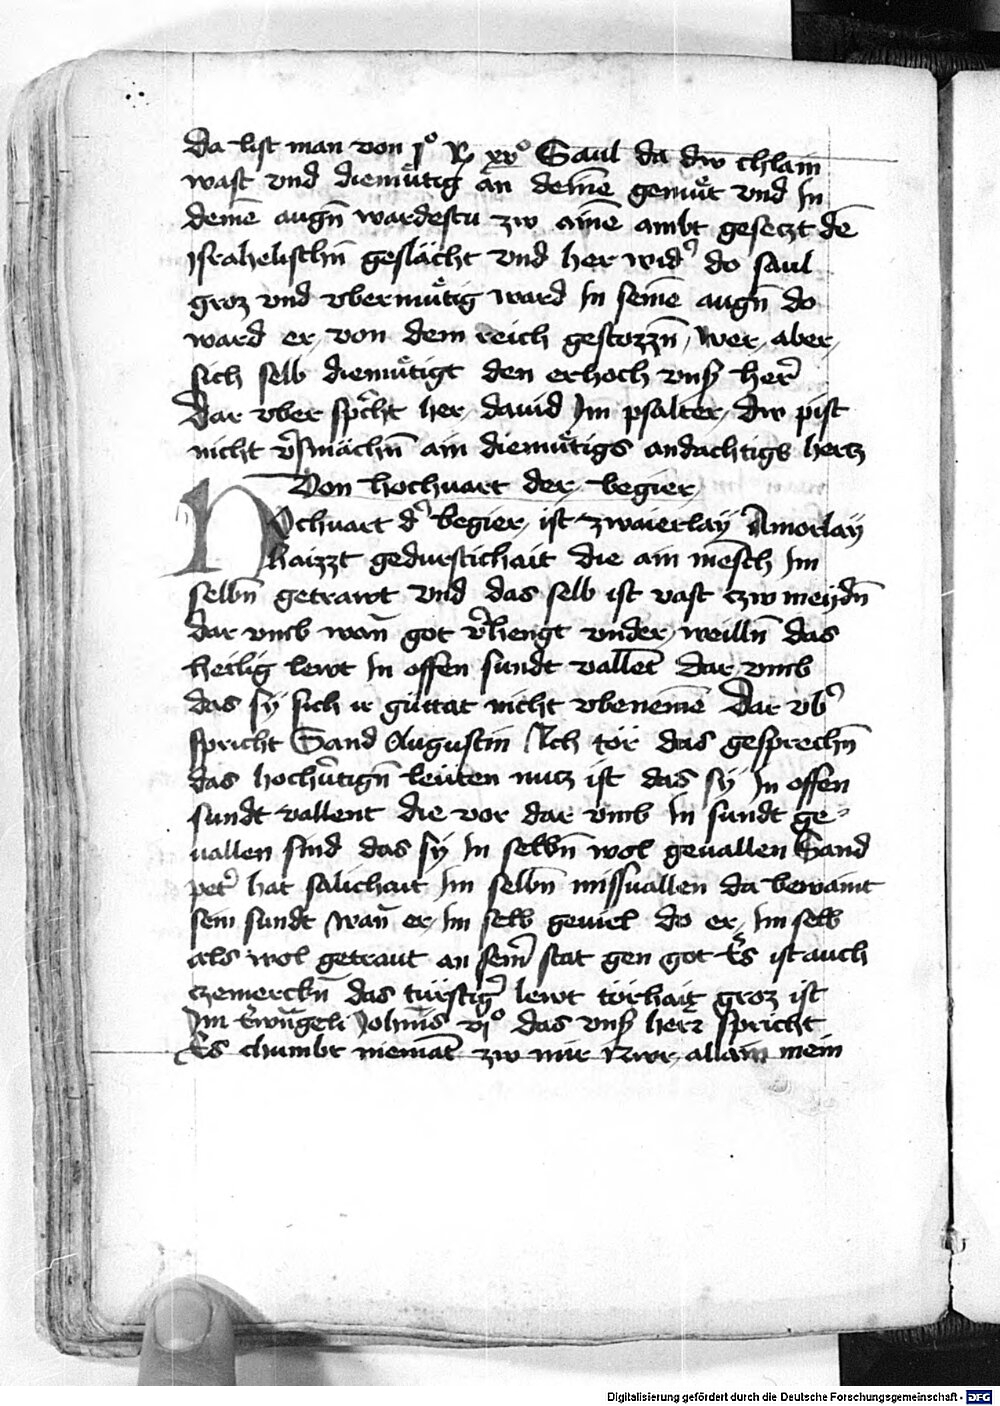 da list man von jº R xvº Saul da dw chlain
wast vnd diemuͤtig an deinē gemuͤt vnd In
deinē augn̄ wardestu zw ainē ambt gesetzt dē
Israhelischn̄ geslächt vnd her widˀ do saul
groz vnd vbermuͤtig ward In seinē augn̄ do
ward er von dem reich gestozzn̄ wer aber
sich selb diemuͤtigt den erhoch vnsˀ her
Dar vber spricht her dauid Im psalter Dw pist
nicht v̄smächn̄ ain diemuͤtigs andachtigs hertz
Von hochuart der begier
Hochuart dˀ begier ist zwaierlay Amorlay
haizzt gedurstichait die ain mēsch Im
selbn̄ getrawt vnd das selb ist vast czw meydn̄
dar vmb wan̄ got v̄hengt vnder weilln̄ das
heilig lewt In offen sundt vallēt dar vmb
das sy sich ir güttat nicht vbenemē Dar vbˀ
spricht Sand Augustin Ich tör das gesprechn̄
das hochūtign̄ leüten nucz ist das sy In offen
sundt vallent die vor dar vmb In sundt ge⸗
uallen sind das sy In selbn̄ wol geuallen Sand
petˀ hat salichait Im selbn̄ missuallen da bewaint
sein sundt wan̄ er Im selb geuiel do er Im selb
als wol getraut an seinˀ stat gen got Es ist auch
czemerckn̄ das türstigˀ lewt törhait groz ist
Im Ewāgeli Joh̄nis vjº das vnsˀ herr spricht
Es chumbt niemāt zw mir Nwr allain mein
Digitalisierung gefördert durch die Deutsche Forschungsgemeinschaft - DFG